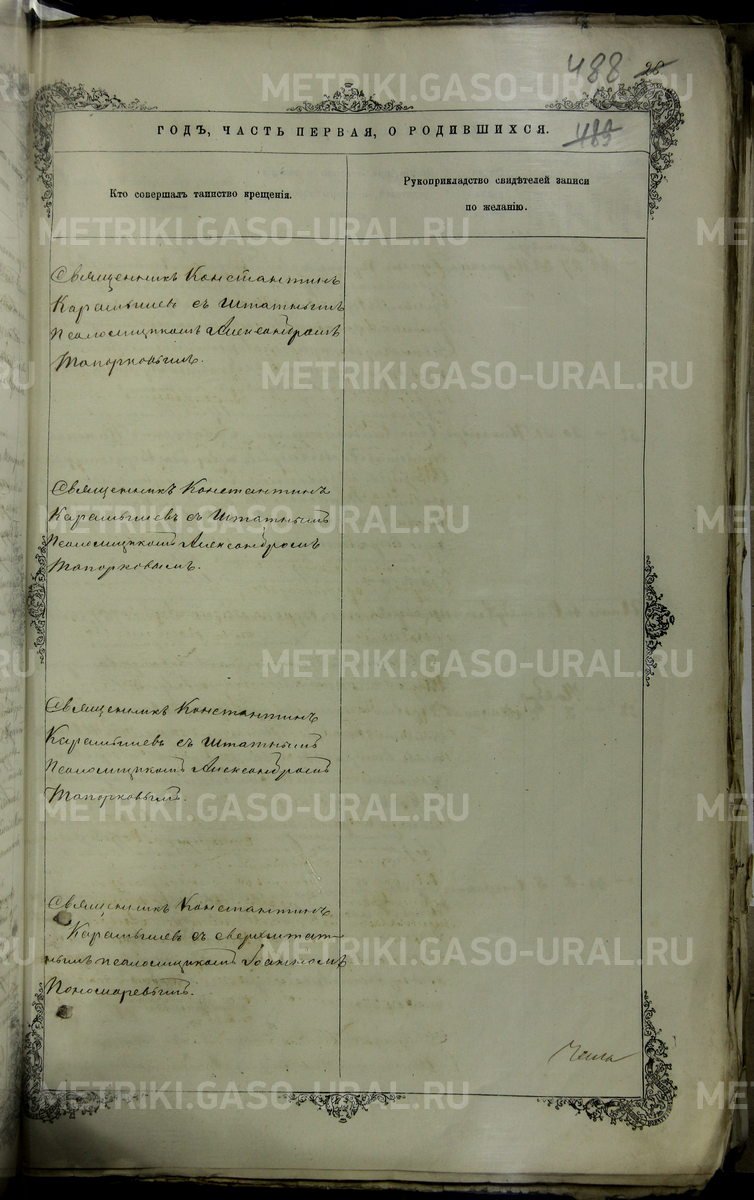 488 28
ГОДЪ, ЧАСТЬ ПЕРВАЯ, О РОДИВШИХСЯ. 483
Кто совершалъ таинство крещенія.
Рукоприкладство свидѣтелей записи
по желанію.
Священникъ Константинъ
Карамышевъ съ штатнымъ
псаломщикомъ Александромъ
Топорковымъ.
Священникъ Константинъ
Карамышевъ съ штатнымъ
псаломщикомъ Александромъ
Топорковымъ.
Священникъ Константинъ
Карамышевъ съ штатнымъ
псаломщикомъ Александромъ
Топорковымъ.
Священникъ Константинъ
Карамышевъ съ сверхштат-
нымъ псаломщикомъ Іоанномъ
Пономаревымъ.
METRIKI.GASO-URAL.RU